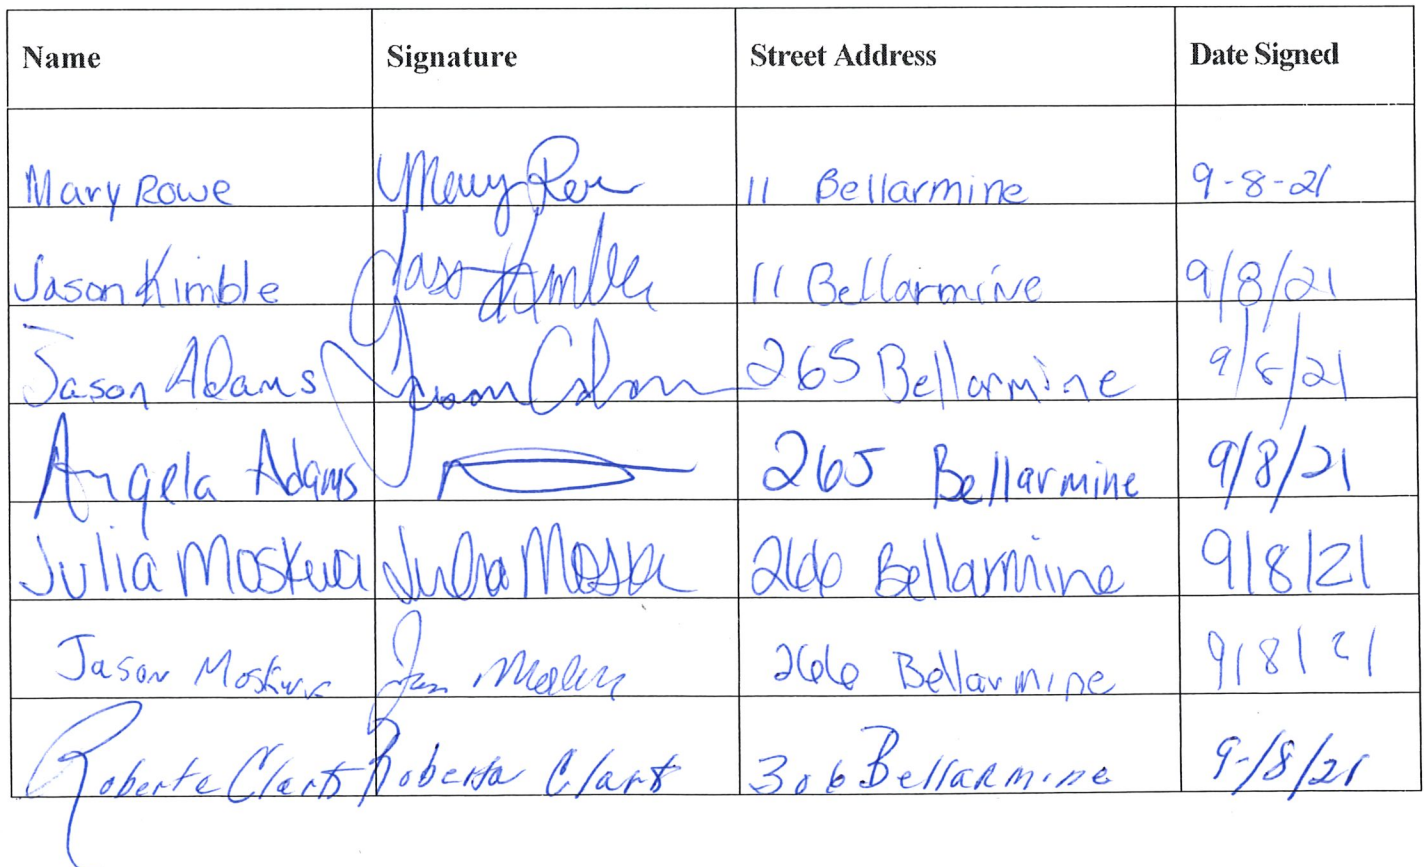 Name Signature Street Address Date Signed
Mary Rowe Mary Rowe 11 Bellarmine 9-8-21
Jason Kimble Jason Kimble 11 Bellarmine 9/8/21
Jason Adams Jason Adams 265 Bellarmine 9/8/21
Angela Adams 265 Bellarmine 9/8/21
Julia Moskwa Julia Moskwa 266 Bellarmine 9/8/21
Jason Moskwa 266 Bellarmine 9/8/21
Roberta Clark Roberta Clark 306 Bellarmine 9-/8/21